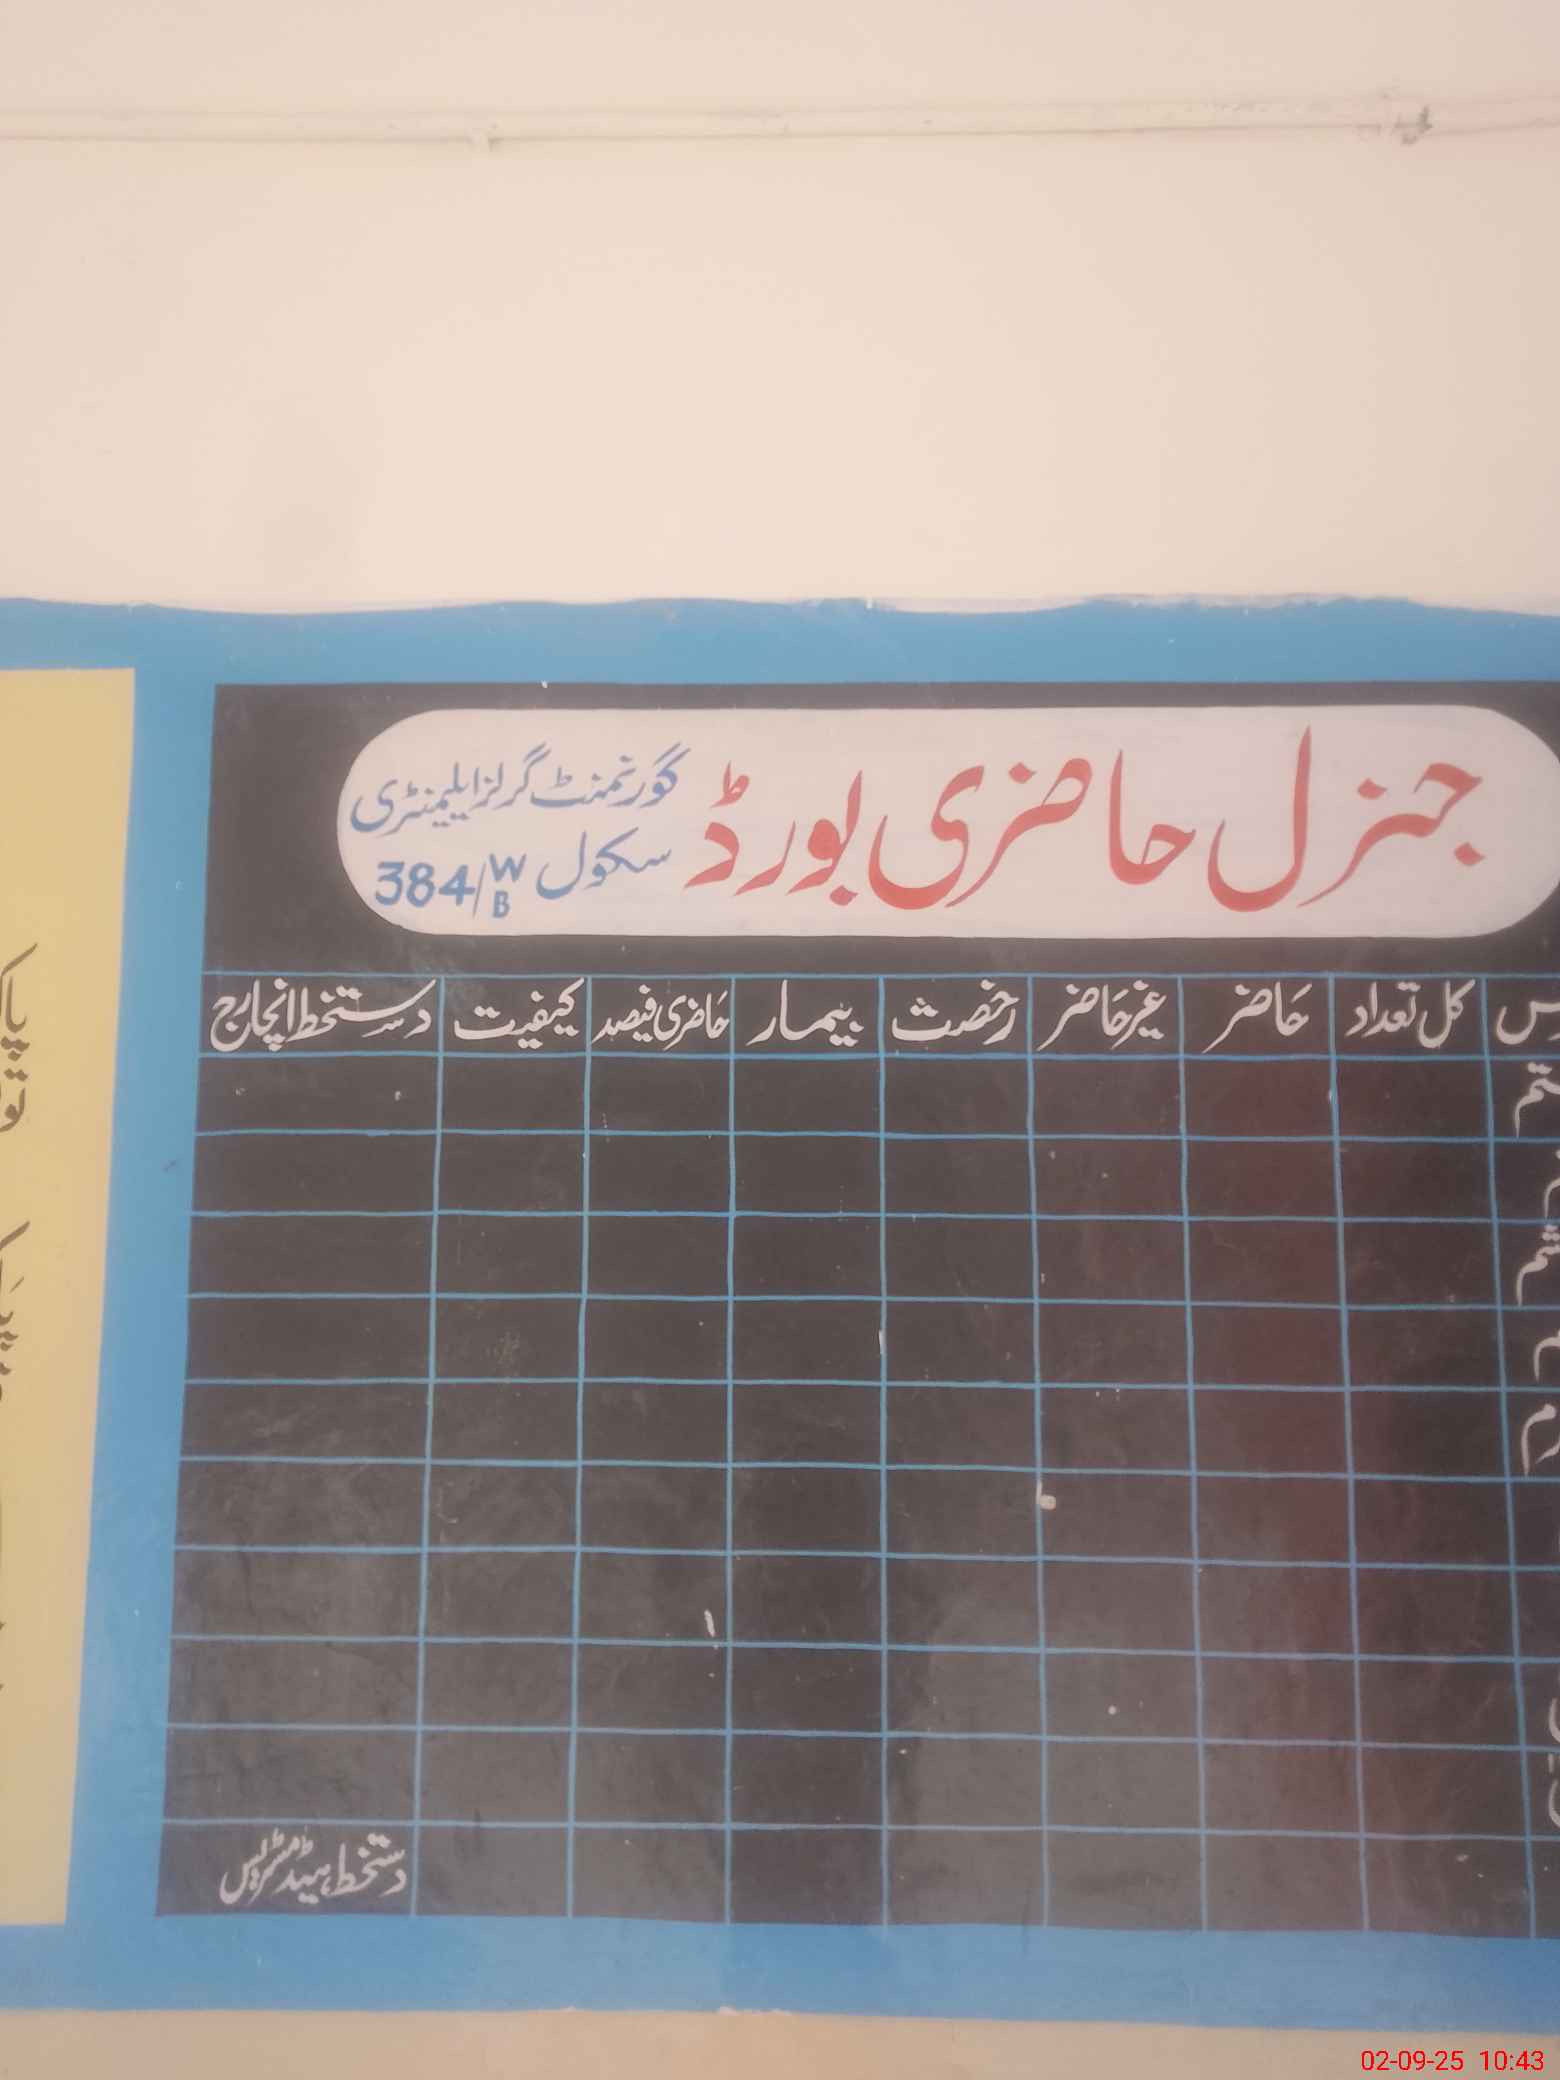 جنرل حاضری بورڈ
گورنمنٹ گرلز ایلیمنٹری
سکول 384/WB
کل تعداد حاضر غیر حاضر رخصت بیمار حاضری فیصد کیفیت دستخط انچارج
دستخط ہیڈ مسٹریس
02-09-25 10:43